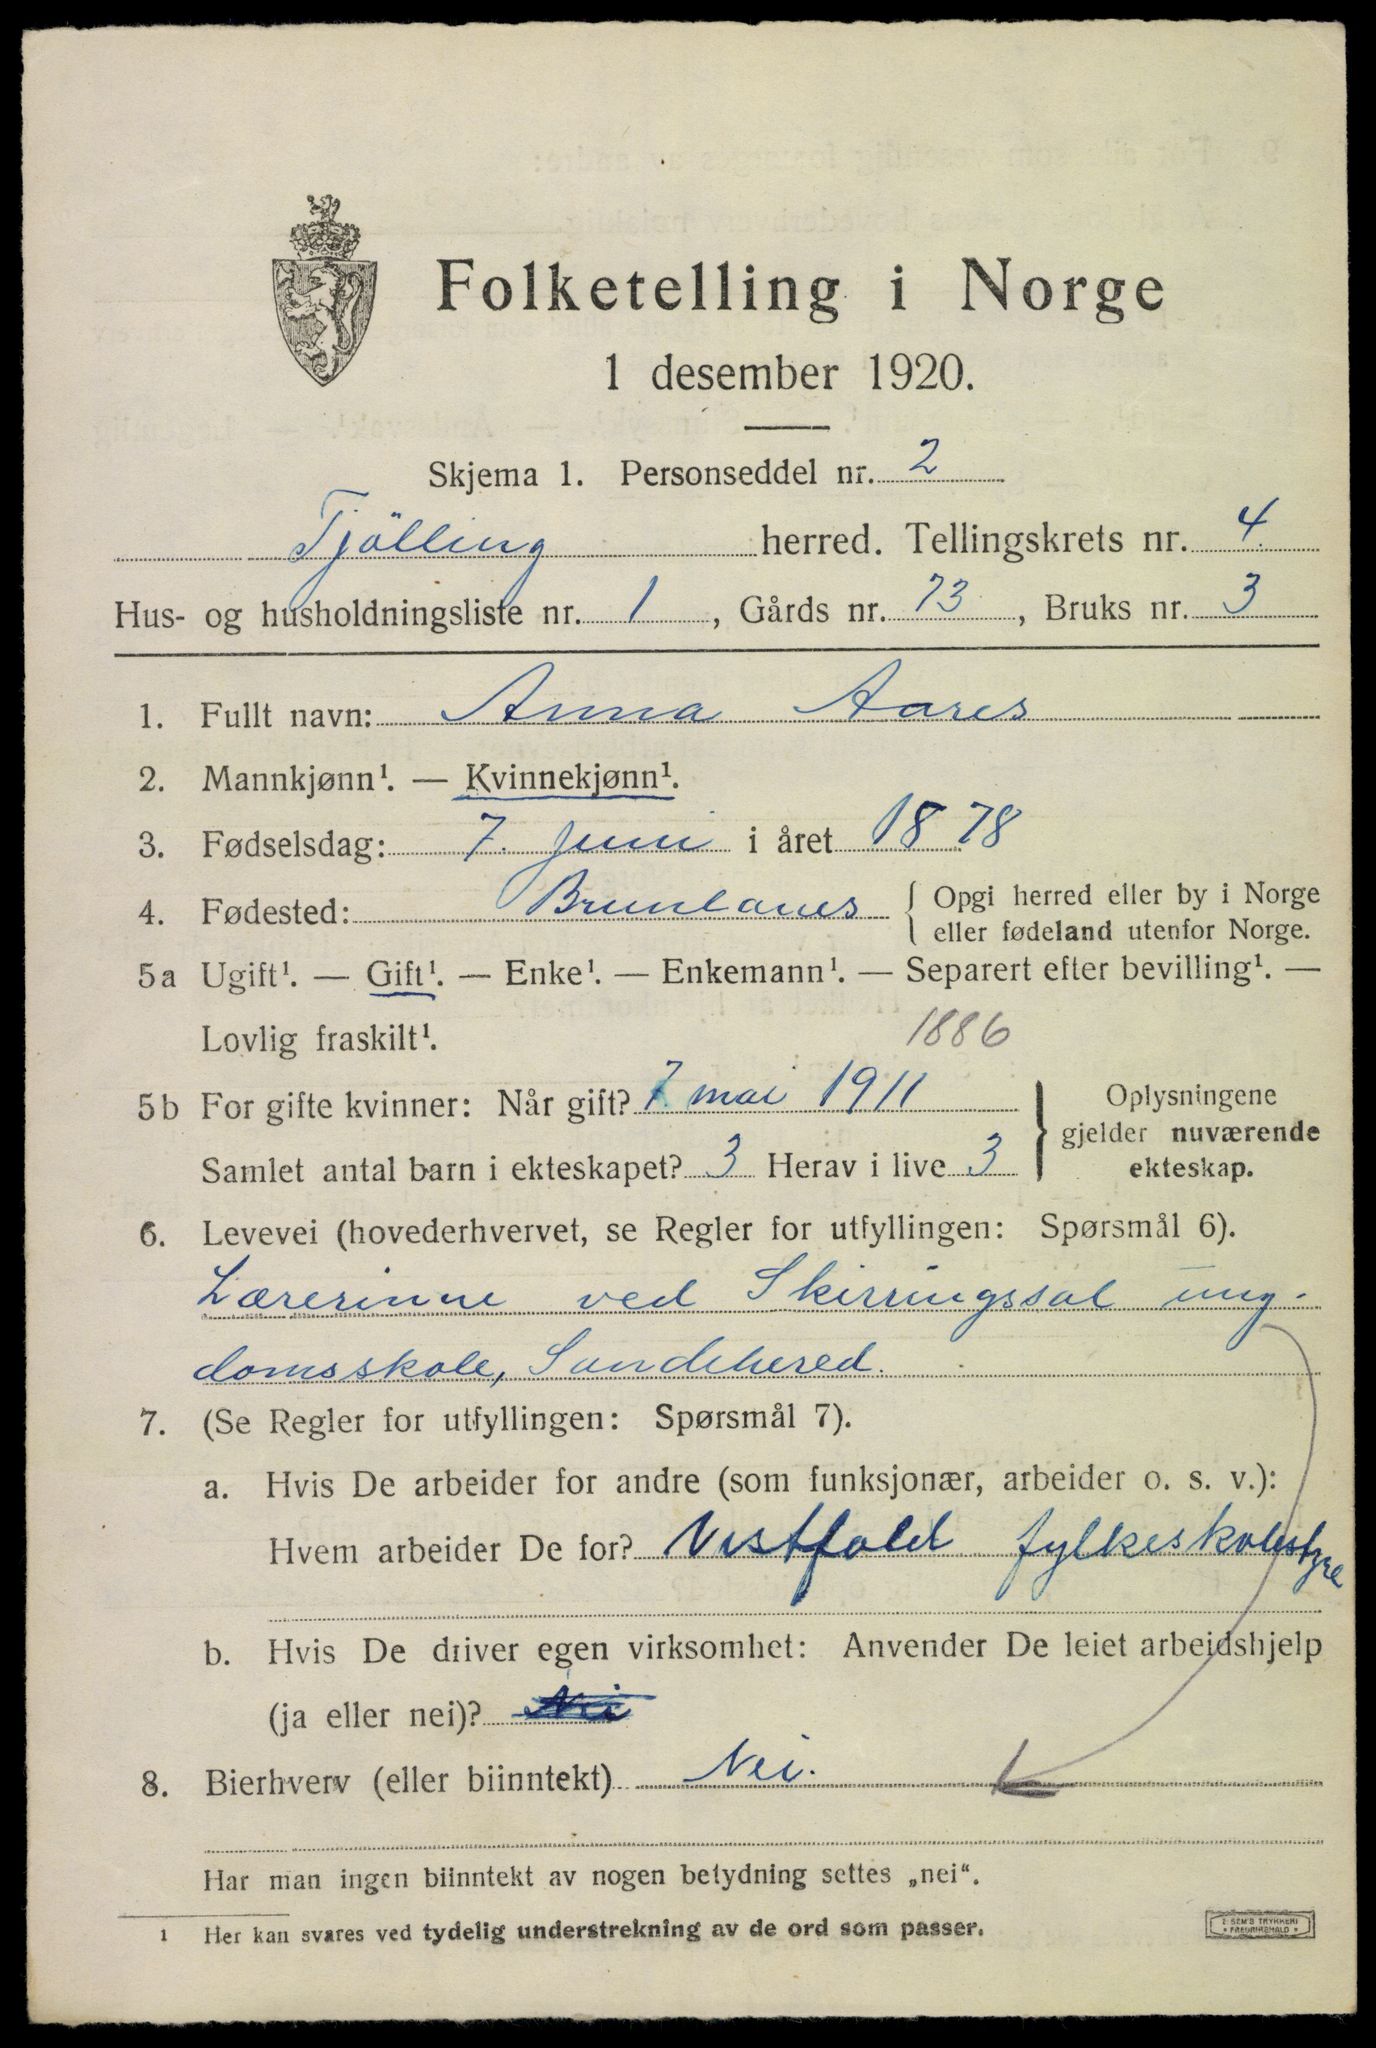 Folketelling i Norge
1 desember 1920.
Skjema 1. Personseddel nr. 2
Tjölling herred. Tellingskrets nr. 4.
Hus- og husholdningsliste nr. 1, Gårds nr. 73, Bruks nr. 3
1. Fullt navn: Anna Aares
2. Mannkjønn¹. — Kvinnekjønn¹.
3. Fødselsdag: 7. juni i året 1878
4. Fødested: Brunlanes { Opgi herred eller by i Norge
eller fødeland utenfor Norge.
5a Ugift¹. — Gift¹. — Enke¹. — Enkemann¹. — Separert efter bevilling¹. —
Lovlig fraskilt¹. 1886
5b For gifte kvinner: Når gift? 7. mai 1911
Samlet antal barn i ekteskapet? 3 Herav i live 3
} Oplysningene
gjelder nuværende
ekteskap.
6. Levevei (hovederhvervet, se Regler for utfyllingen: Spørsmål 6).
Lærerinne ved Skirringssal ung-
domsskole, Sandeherred.
7. (Se Regler for utfyllingen: Spørsmål 7).
a. Hvis De arbeider for andre (som funksjonær, arbeider o. s. v.):
Hvem arbeider De for? Vestfold fylkeskolestyre
b. Hvis De driver egen virksomhet: Anvender De leiet arbeidshjelp
(ja eller nei)? Nei
8. Bierhverv (eller biinntekt) Nei.
Har man ingen biinntekt av nogen betydning settes „nei“.
¹ Her kan svares ved tydelig understrekning av de ord som passer.
E. SEM'S TRYKKERI
* FREDRIKSHALD *